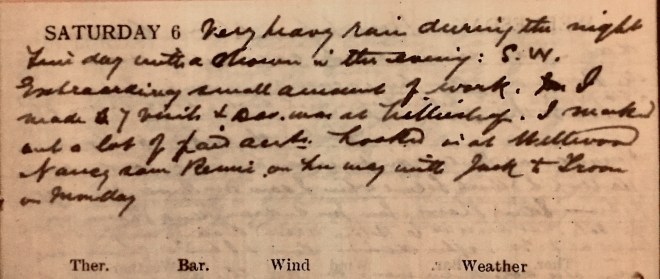 SATURDAY 6 Very heavy rain during the night
Fine day with a shower in the evening: S.W.
Extraordinary small amount of work. I
made 7 visits & was at . I marked
out a lot of paid accts. Looked in at Wellwood
Nancy saw Rennie on his way with Jack & Troon
on Monday
Ther. Bar. Wind Weather